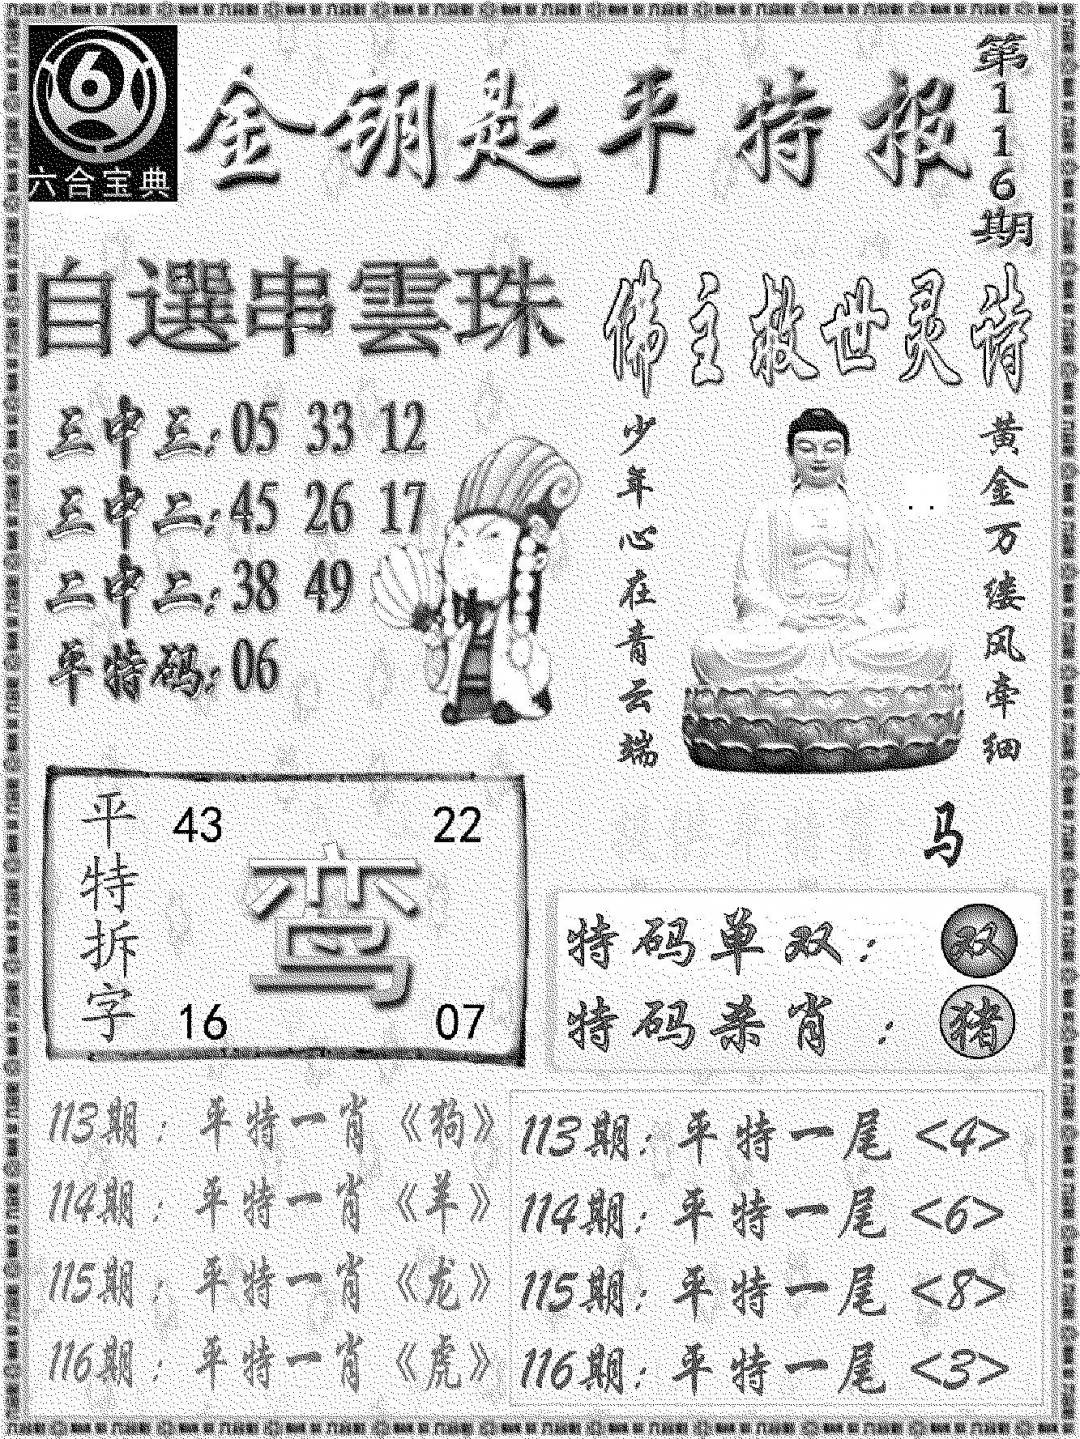 六合宝典
金钥匙平特报
第116期
自選串雲珠
三中三:05 33 12
三中二:45 26 17
二中二:38 49
单特码:06
佛主救世灵诗
黄金万缕风牵细
少年心在青云端
马
平特拆字
43 22
鸾
16 07
特码单双: 双
特码杀肖: 猪
113期: 平特一肖《狗》
114期: 平特一肖《羊》
115期: 平特一肖《龙》
116期: 平特一肖《虎》
113期: 平特一尾 <4>
114期: 平特一尾 <6>
115期: 平特一尾 <8>
116期: 平特一尾 <3>